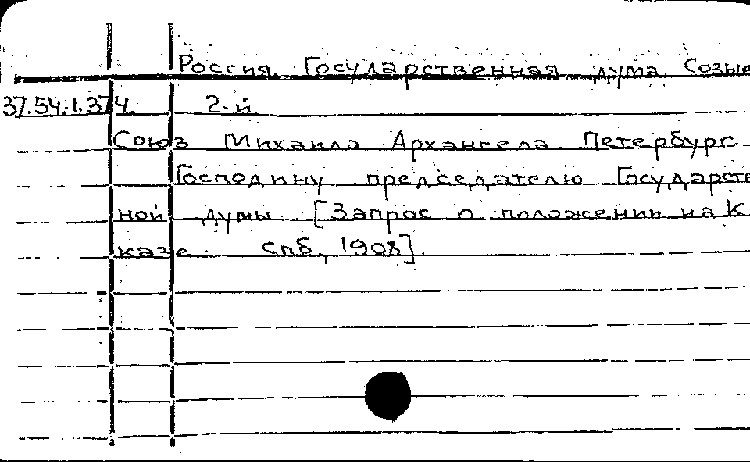 Россия. Государственная дума. Созы
37.54.1.374. 2-й
Союз Михаила Архангела. Петербург
Господину председателю Государств
ной думы [Запрос о положении на К
казе. Спб, 1908].